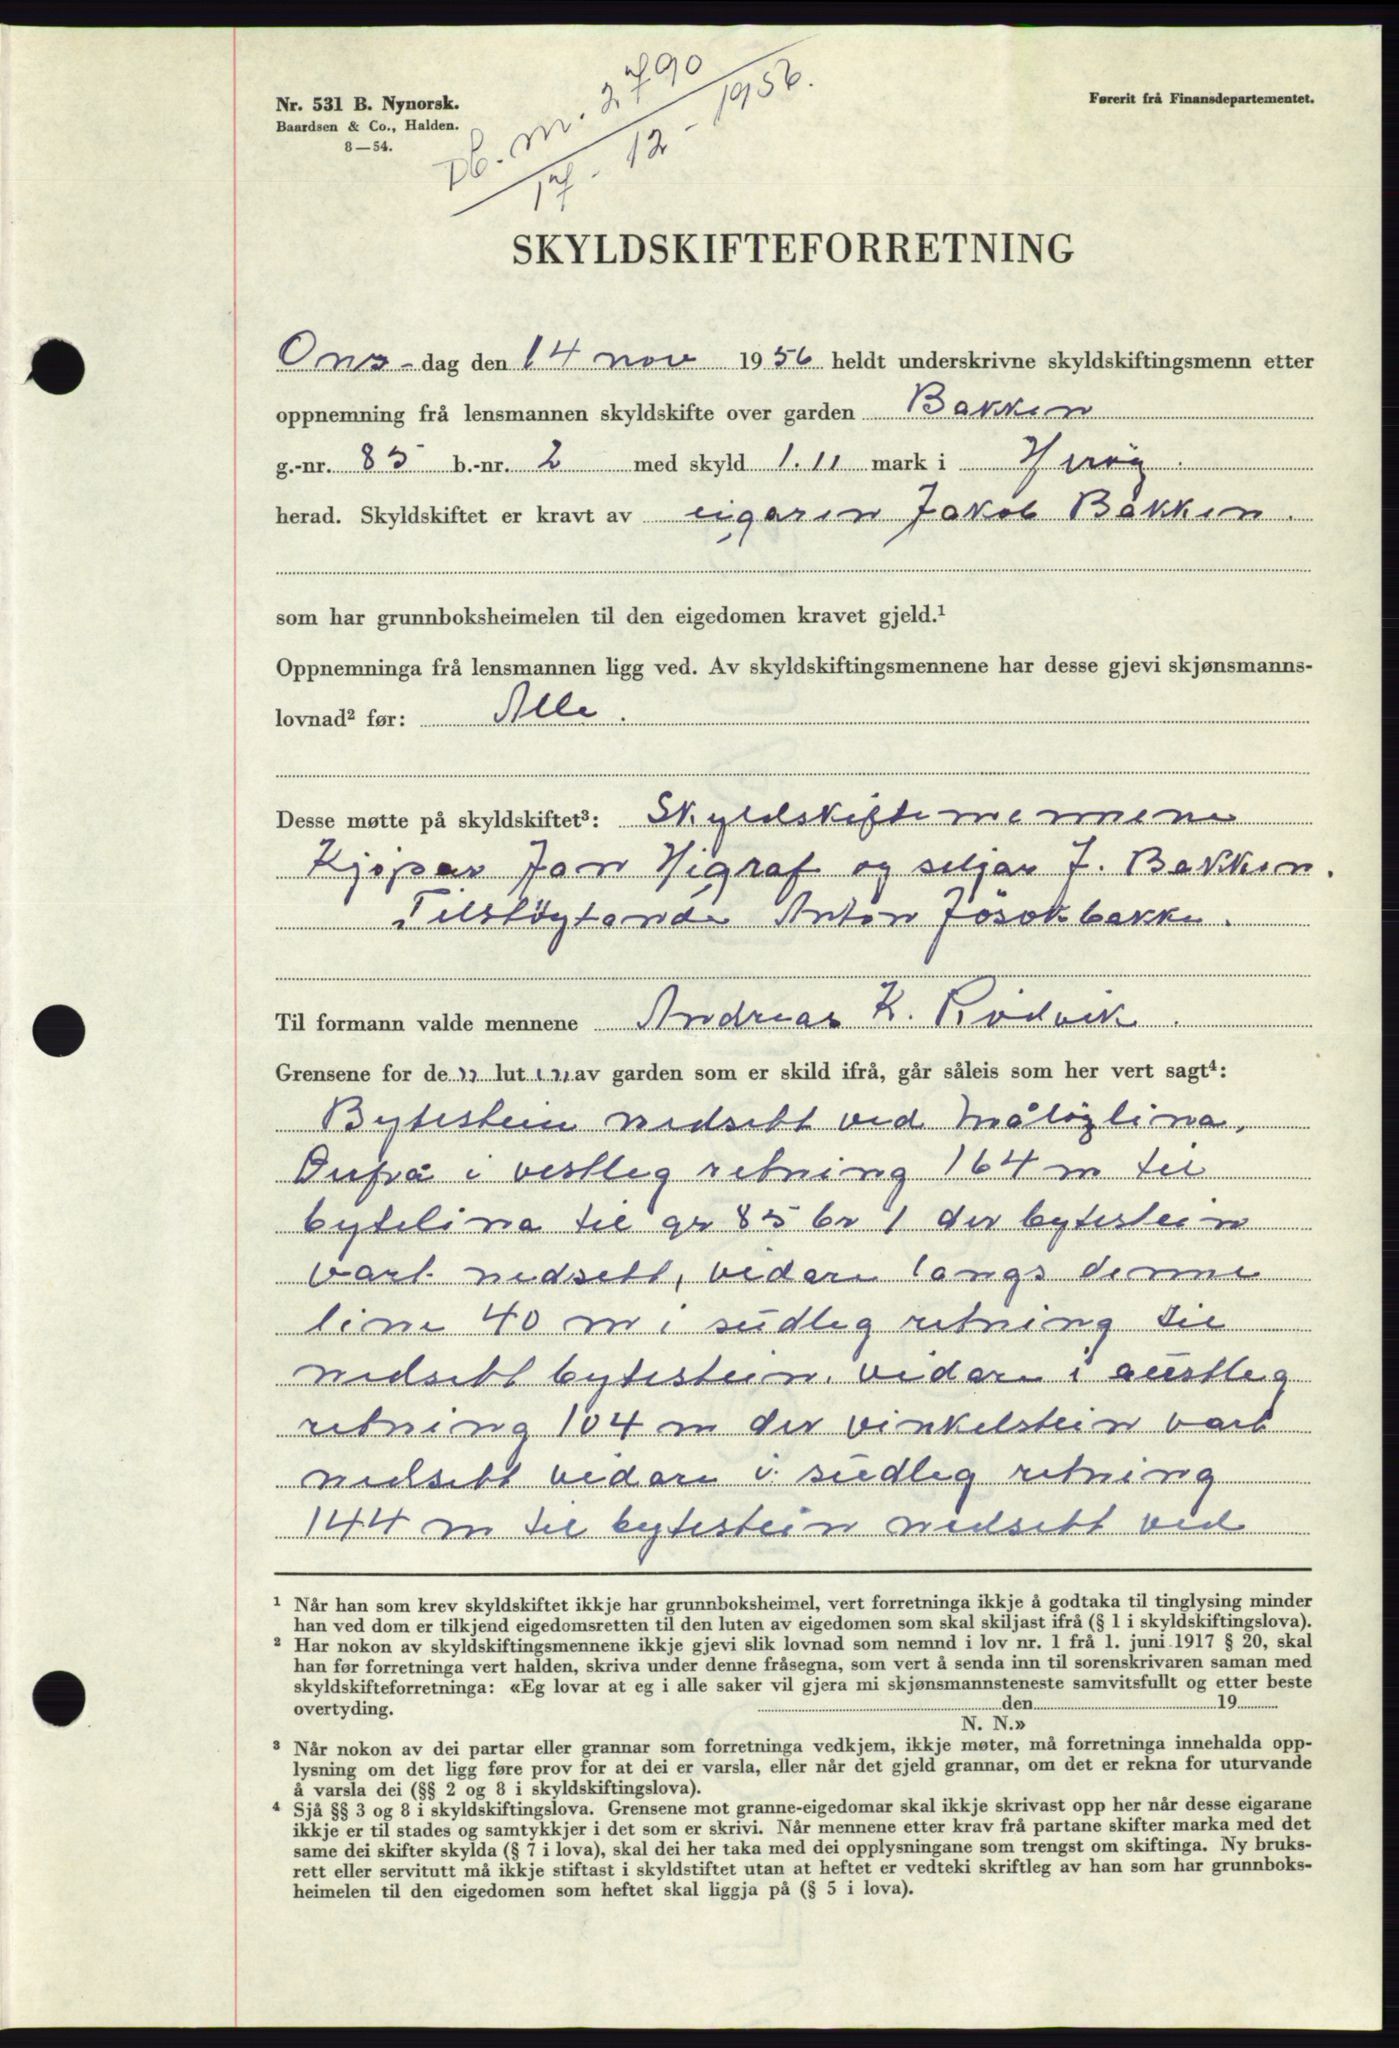 Nr. 531 B. Nynorsk.
Baardsen & Co., Halden.
8—54.
Db. nr. 2790
17 - 12 - 1956.
Førerit frå Finansdepartementet.
SKYLDSKIFTEFORRETNING
Ons-dag den 14 nov 1956 heldt underskrivne skyldskiftingsmenn etter
oppnemning frå lensmannen skyldskifte over garden Bakken
g.-nr. 85 b.-nr. 2 med skyld 1.11 mark i Herøy.
herad. Skyldskiftet er kravt av eigaren Jakob Bakken.
som har grunnboksheimelen til den eigedomen kravet gjeld.¹
Oppnemninga frå lensmannen ligg ved. Av skyldskiftingsmennene har desse gjevi skjønsmanns-
lovnad² før: Alle.
Desse møtte på skyldskiftet³: Skyldskiftemennene
Kjøpar Jan Higraf og seljar J. Bakken.
Tilstøytande Anton Jösokbakke.
Til formann valde mennene Andreas K. Rødvik.
Grensene for den luten av garden som er skild ifrå, går såleis som her vert sagt⁴:
Bytestein nedsett ved Måløylina,
Derfrå i vestleg retning 164 m til
bytelina til gr 85 br 1 der bytestein
vart nedsett, vidare langs denne
line 40 m i sudleg retning til
nedsett bytestein. vidare i austleg
retning 104 m der vinkelstein vart
nedsett vidare i sudleg retning
144 m til bytestein nedsett ved
¹ Når han som krev skyldskiftet ikkje har grunnboksheimel, vert forretninga ikkje å godtaka til tinglysing minder
han ved dom er tilkjend eigedomsretten til den luten av eigedomen som skal skiljast ifrå (§ 1 i skyldskiftingslova).
² Har nokon av skyldskiftingsmennene ikkje gjevi slik lovnad som nemnd i lov nr. 1 frå 1. juni 1917 § 20, skal
han før forretninga vert halden, skriva under denne fråsegna, som vert å senda inn til sorenskrivaren saman med
skyldskifteforretninga: «Eg lovar at eg i alle saker vil gjera mi skjønsmannsteneste samvitsfullt og etter beste
overtyding. den 19
N. N.»
³ Når nokon av dei partar eller grannar som forretninga vedkjem, ikkje møter, må forretninga innehalda opp-
lysning om det ligg føre prov for at dei er varsla, eller når det gjeld grannar, om det er rekna for uturvande
å varsla dei (§§ 2 og 8 i skyldskiftingslova).
⁴ Sjå §§ 3 og 8 i skyldskiftingslova. Grensene mot granne-eigedomar skal ikkje skrivast opp her når desse eigarane
ikkje er til stades og samtykkjer i det som er skrivi. Når mennene etter krav frå partane skifter marka med det
same dei skifter skylda (§ 7 i lova), skal dei her taka med dei opplysningane som trengst om skiftinga. Ny bruks-
rett eller servitutt må ikkje stiftast i skyldstiftet utan at heftet er vedteki skriftleg av han som har grunnboks-
heimelen til den eigedomen som heftet skal liggja på (§ 5 i lova).